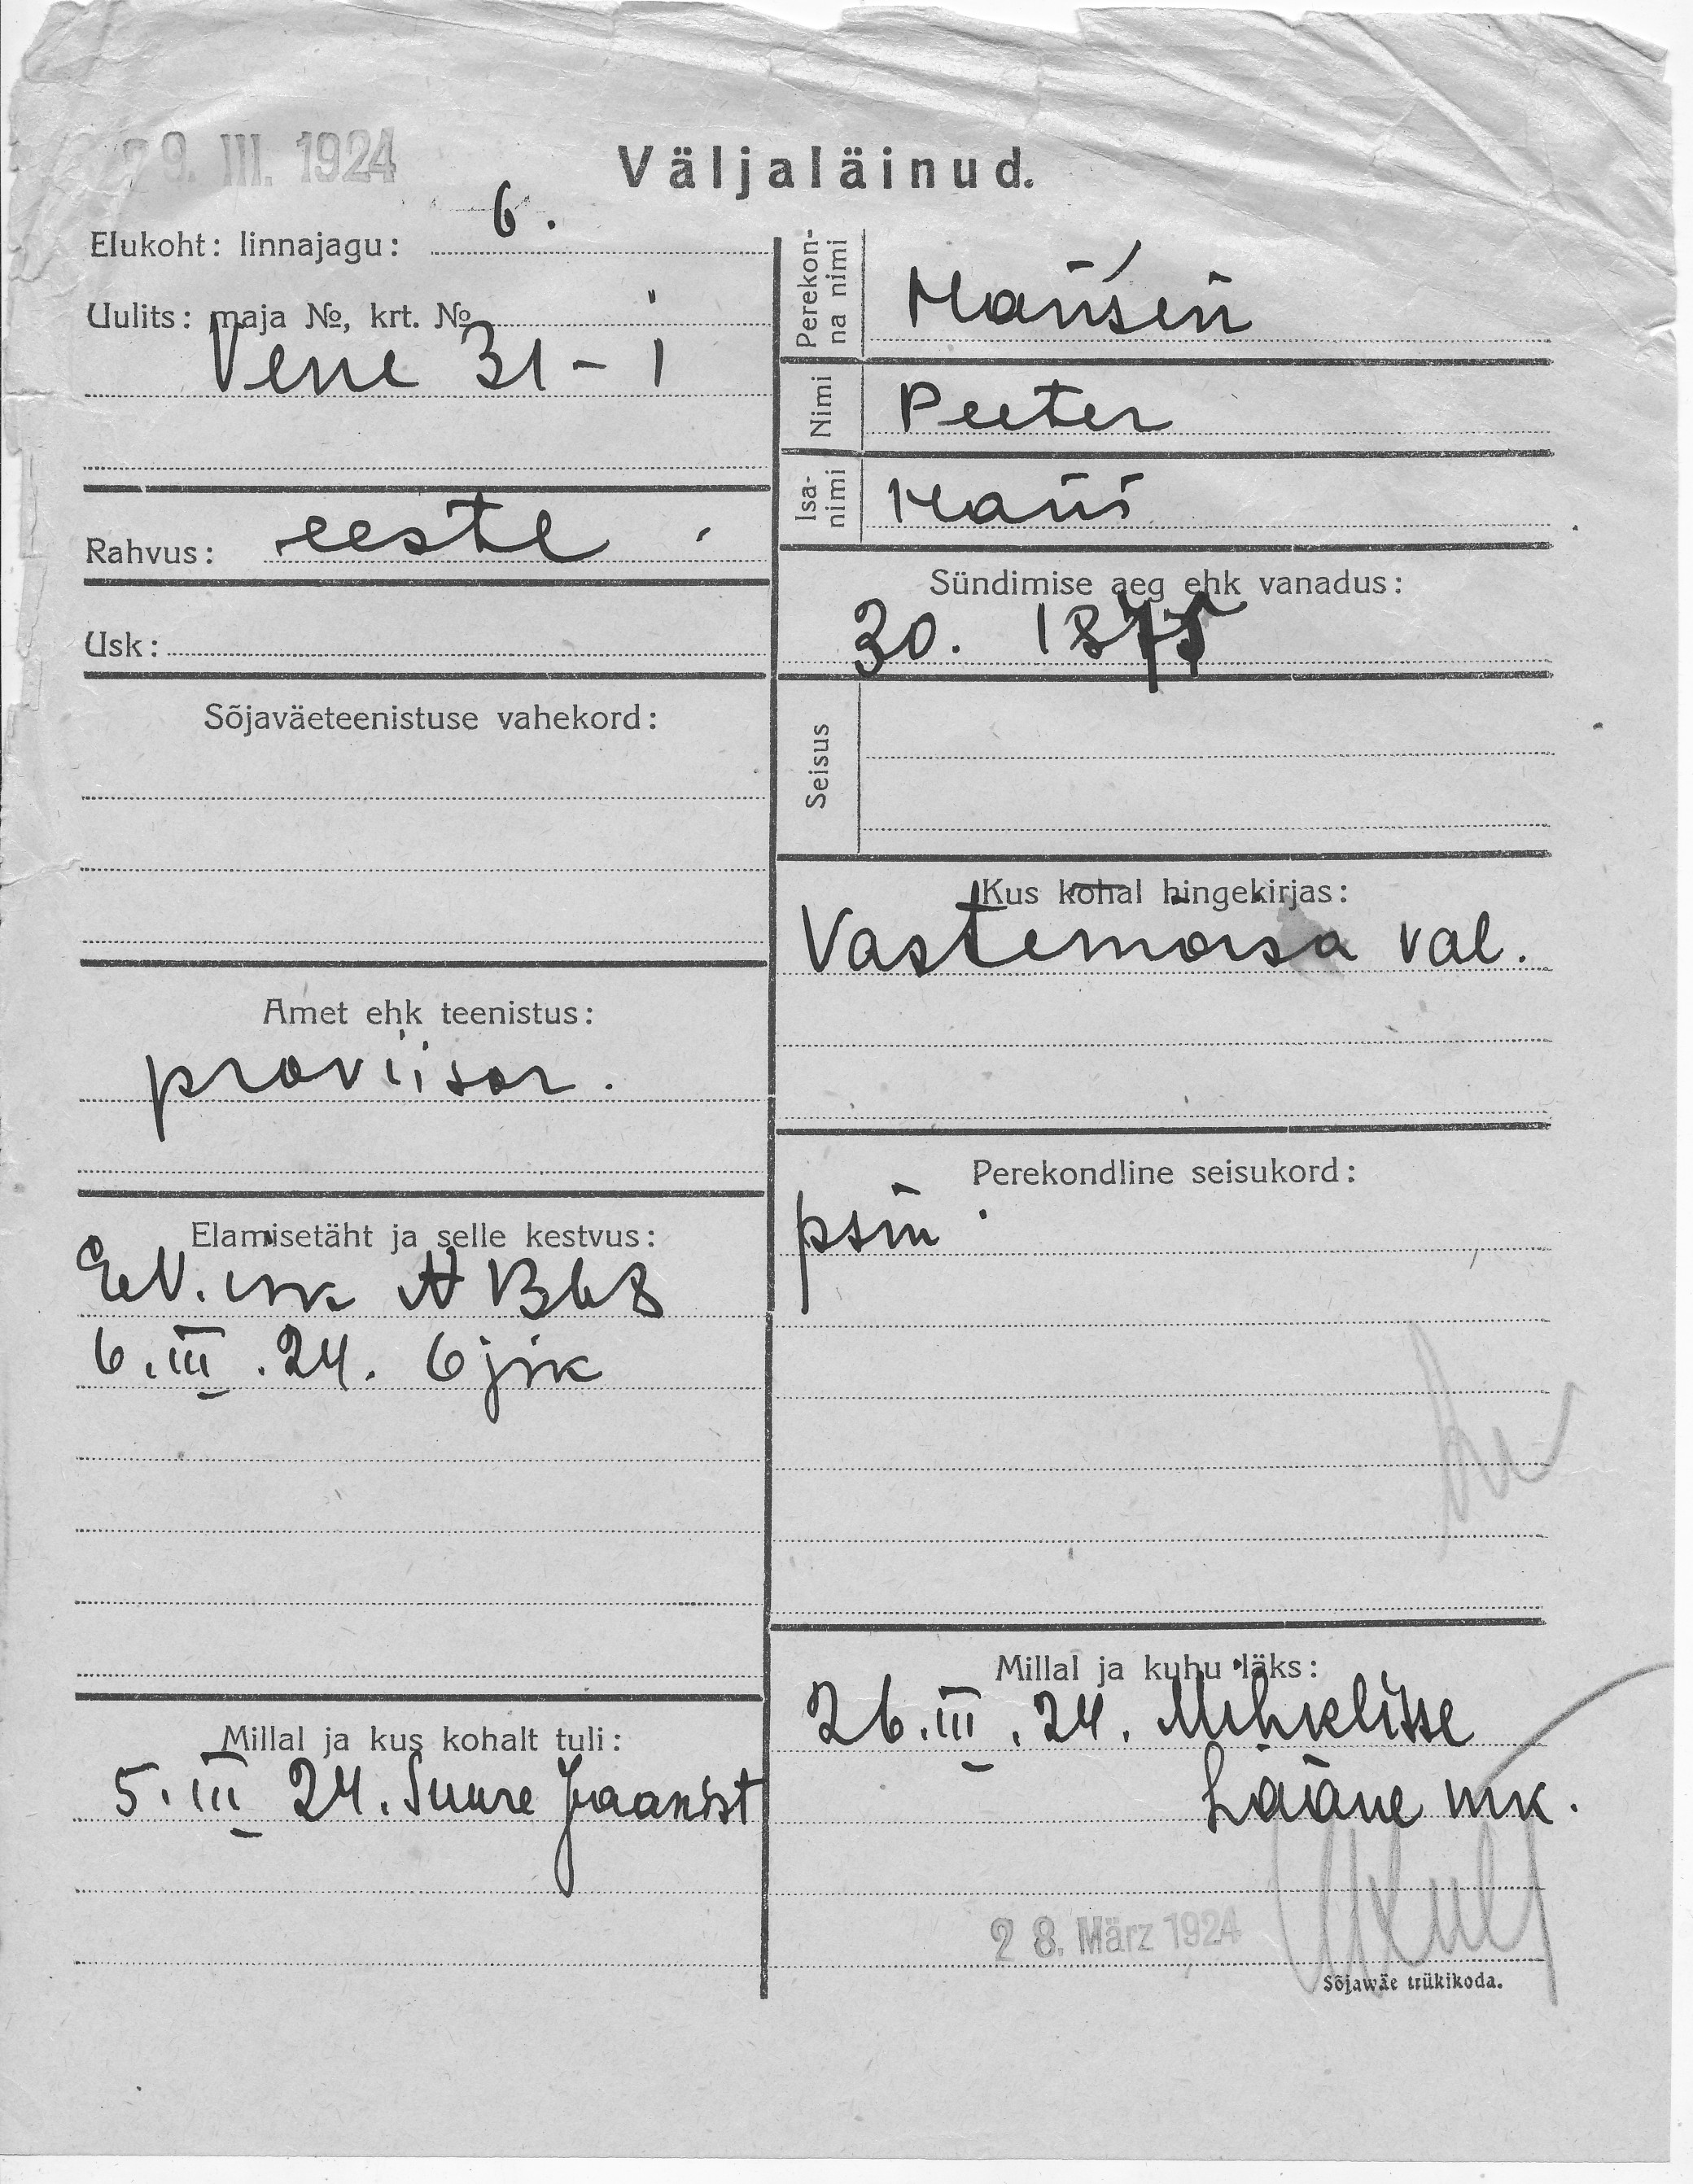 29. III. 1924
Väljaläinud.
Elukoht: linnajagu: 6.
Uulits: maja №, krt. №
Vene 31 - 1
Rahvus: eeste
Usk:
Sõjaväeteenistuse vahekord:
Amet ehk teenistus:
proviisor.
Elamisetäht ja selle kestvus:
E.V. isk A 1368
6. III. 24. 6 jsk
Millal ja kus kohalt tuli:
5. III 24. Suure Jaanist
Perekonna nimi
Hansen
Nimi
Peeter
Isanimi
Hans
Sündimise aeg ehk vanadus:
30. 1875
Seisus
Kus kohal hingekirjas:
Vastemoisa val.
Perekondline seisukord:
Millal ja kuhu läks:
26. III. 24. Mihklisse
Lääne mk.
28. März 1924
Sõjawäe trükikoda.